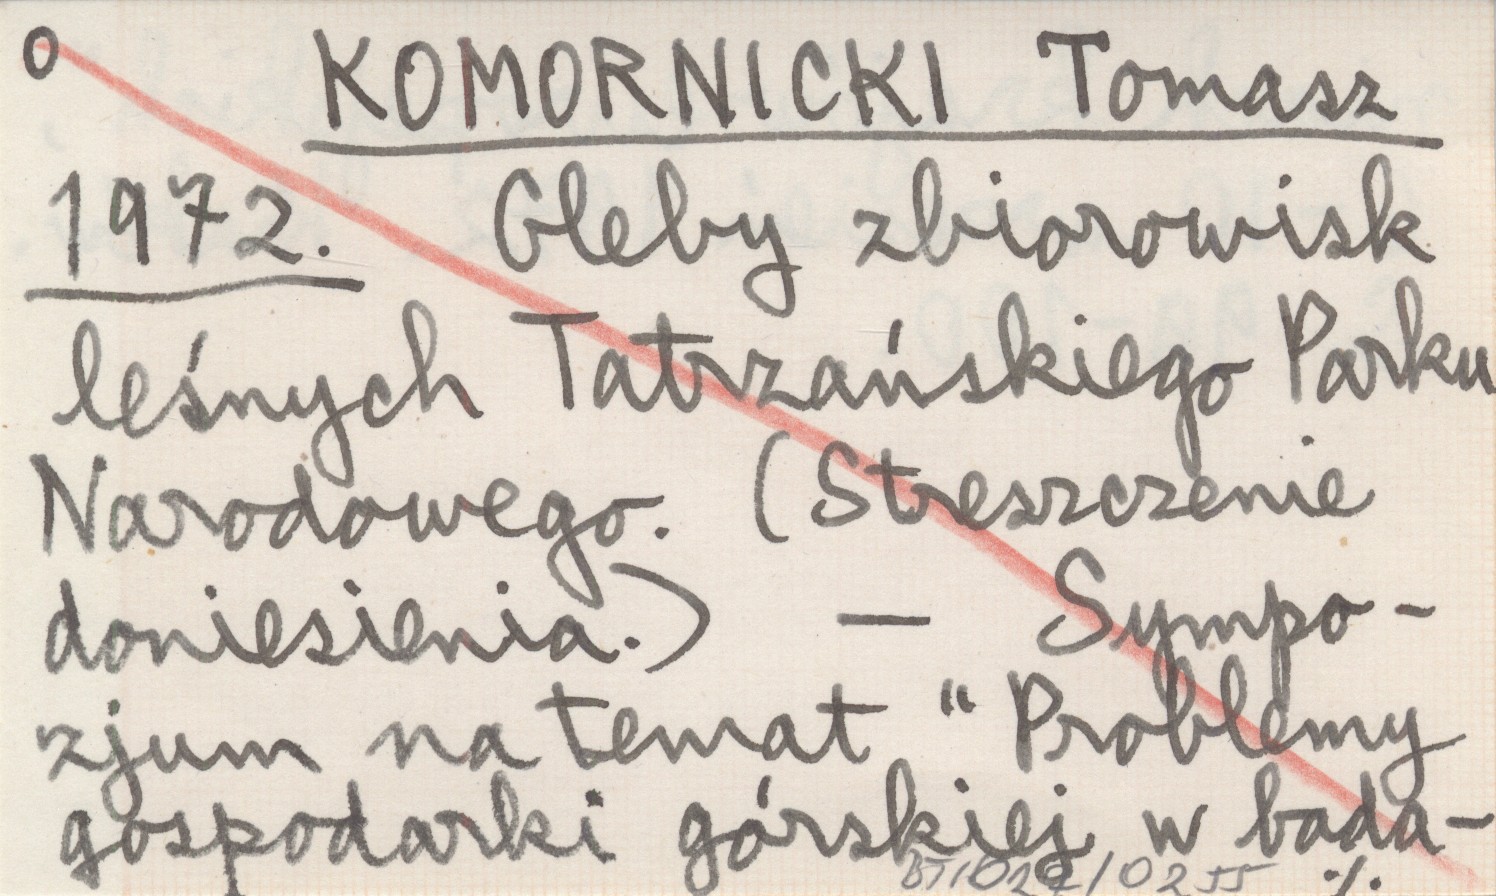 o KOMORNICKI Tomasz
1972. Gleby zbiorowisk
leśnych Tatrzańskiego Parku
Narodowego. (Streszczenie
doniesienia.) — Sympo-
zjum na temat "Problemy
gospodarki górskiej w bada-
BTI/029/0255 ./.